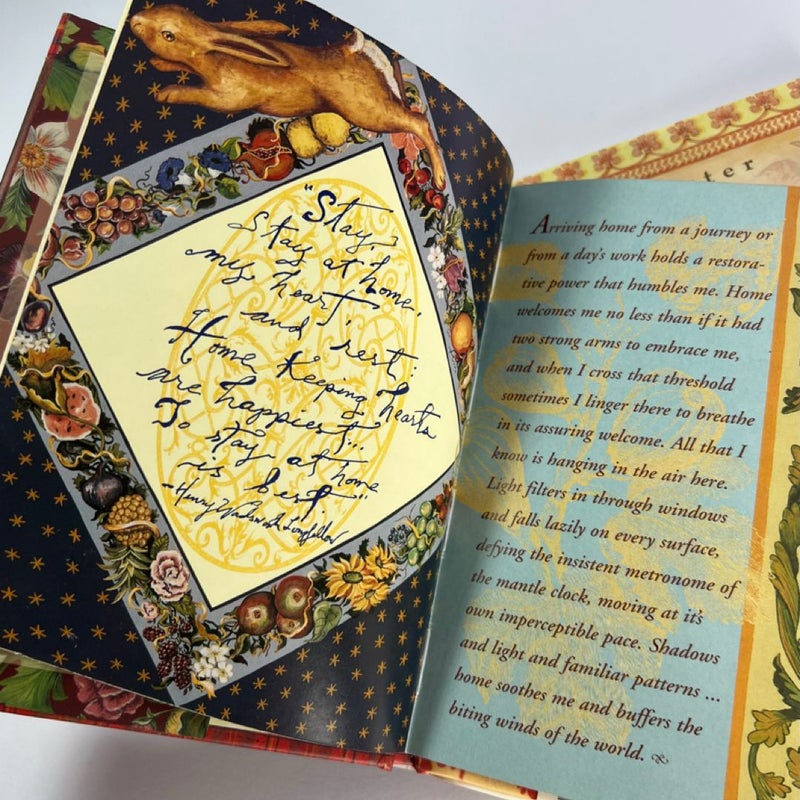 "Stay,
Stay at home,
my heart,
and rest;
Home keeping hearts
are happiest...
To stay at home
is best."
-Henry Wadsworth Longfellow
ter
Arriving home from a journey or
from a day's work holds a restora-
tive power that humbles me. Home
welcomes me no less than if it had
two strong arms to embrace me,
and when I cross that threshold
sometimes I linger there to breathe
in its assuring welcome. All that I
know is hanging in the air here.
Light filters in through windows
and falls lazily on every surface,
defying the insistent metronome of
the mantle clock, moving at it's
own imperceptible pace. Shadows
and light and familiar patterns ...
home soothes me and buffers the
biting winds of the world.